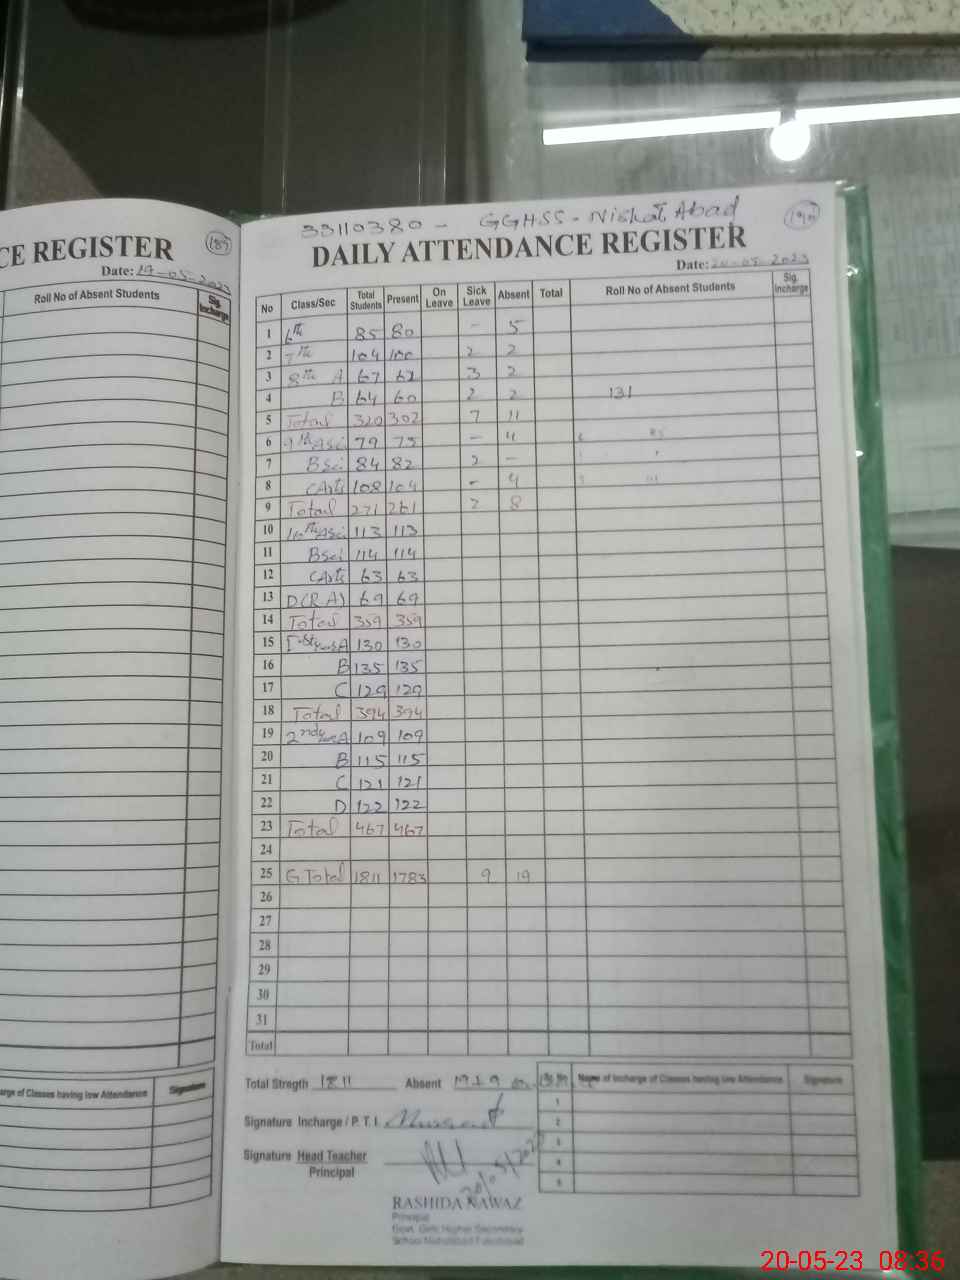 CE REGISTER 189
Date: 19-05-2023
Roll No of Absent Students Sig. Incharge
arge of Classes having low Attendance Signature
33110380 - GGHSS - Nishat Abad 190
DAILY ATTENDANCE REGISTER
Date: 20-05-2023
No Class/Sec Total Students Present On Leave Sick Leave Absent Total Roll No of Absent Students Sig. Incharge
1 6th 85 80 - 5
2 7th 104 100 2 2
3 8th A 67 62 3 2
4 B 64 60 2 2 131
5 Total 320 302 7 11
6 9th Asci 79 75 - 4
7 Bsci 84 82 2 -
8 CArts 108 104 - 4
9 Total 271 261 2 8
10 10th Asci 113 113
11 Bsci 114 114
12 CArts 63 63
13 D(R.A) 69 69
14 Total 359 359
15 I-Styear A 130 130
16 B 135 135
17 C 129 129
18 Total 394 394
19 2ndyear A 109 109
20 B 115 115
21 C 121 121
22 D 122 122
23 Total 467 467
24
25 G.Total 1811 1783 9 19
26
27
28
29
30
31
Total
Total Stregth 1811 Absent Name of Incharge of Classes having low Attendance Signature
1
Signature Incharge / P. T. I. 2
3
Signature Head Teacher 4
Principal 20/05/2023 5
RASHIDA NAWAZ
Principal
Govt. Girls Higher Secondary
School Nishatabad Faisalabad
20-05-23 08:36